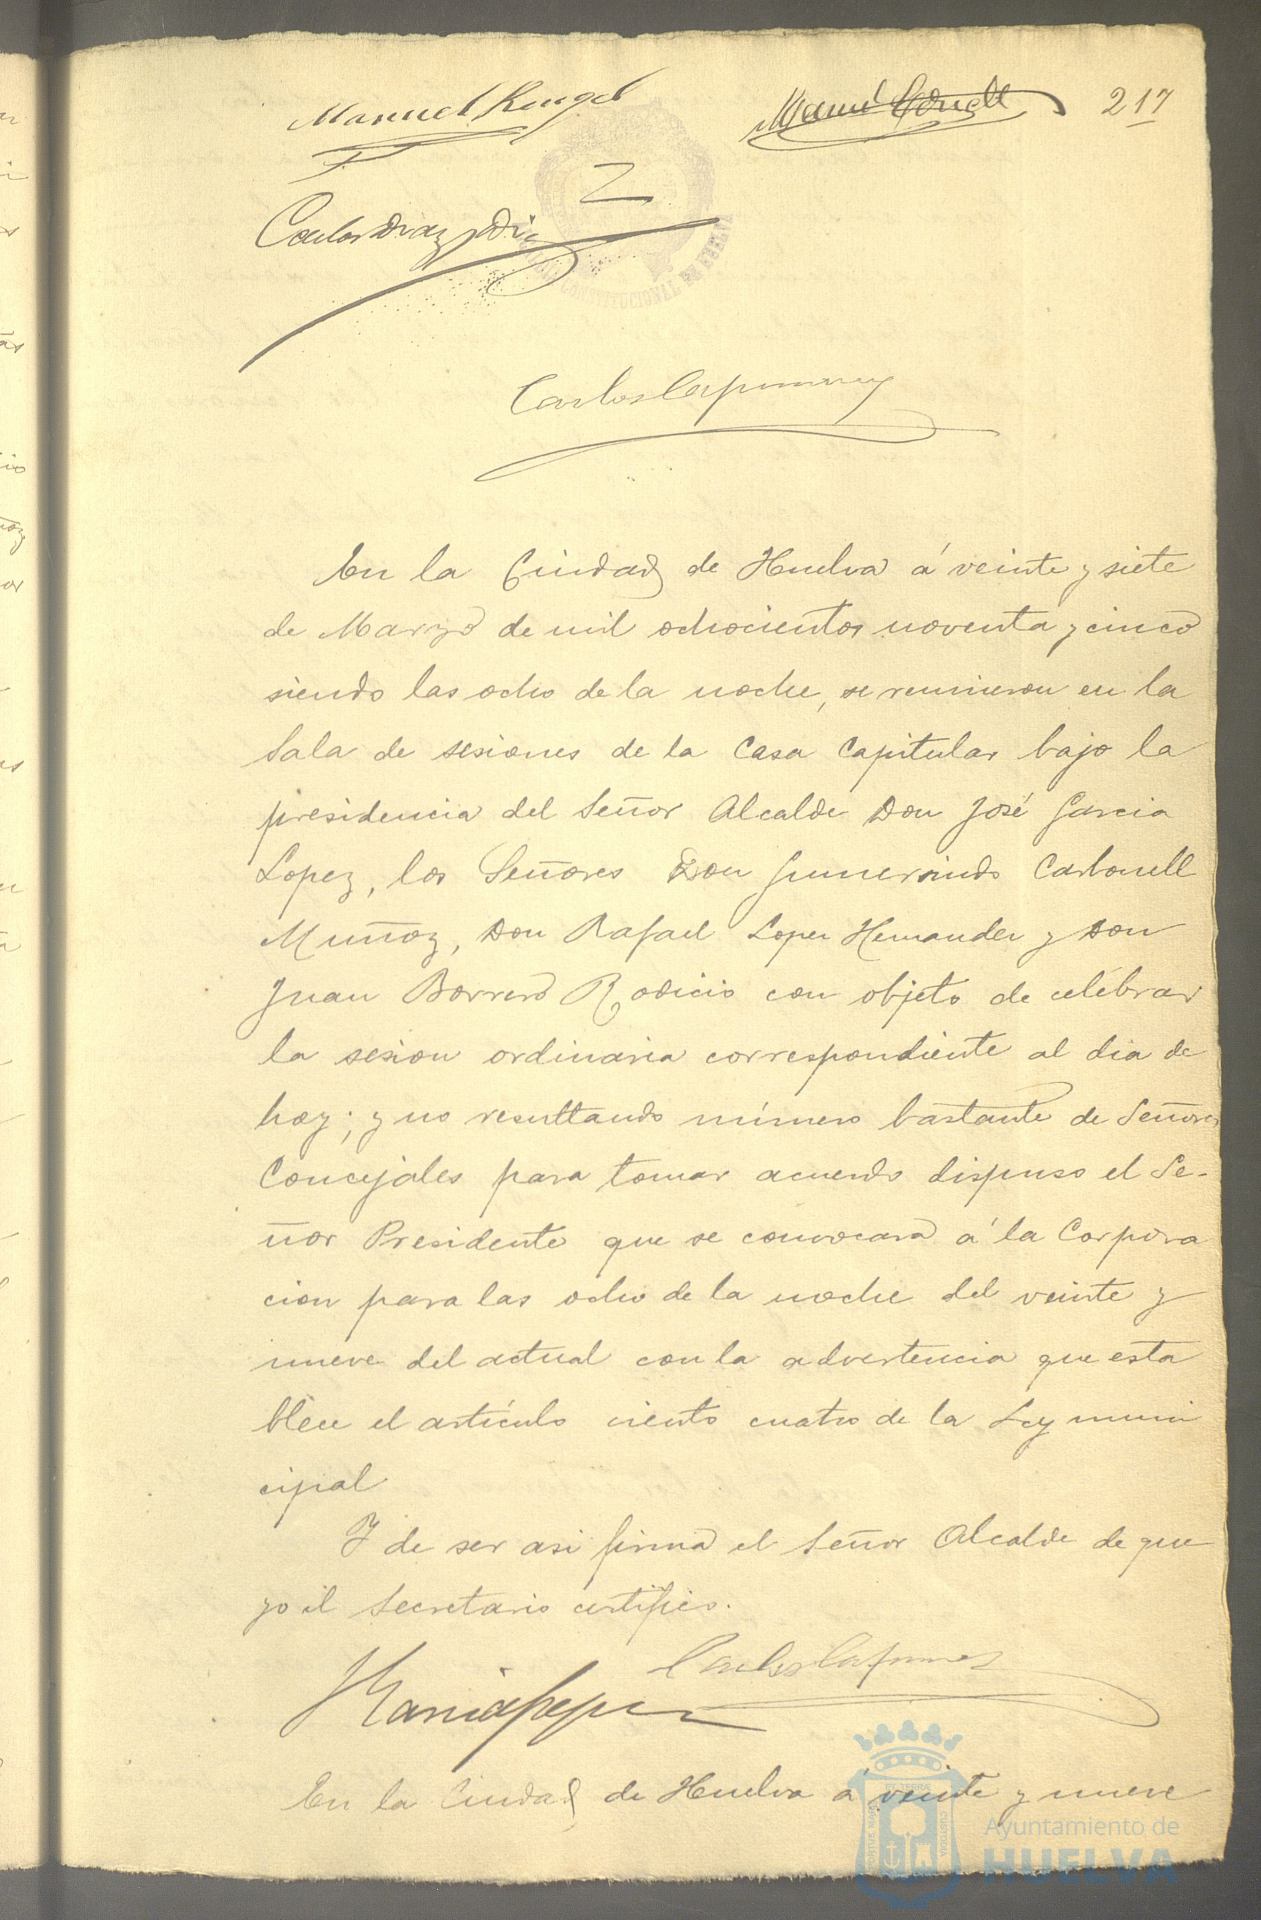 Manuel Rengel
217
Carlos Diaz
CONSTITUCIONAL DE HUELVA
Carlos
En la Ciudad de Huelva á veinte y siete
de Marzo de mil ochocientos noventa y cinco
siendo las ocho de la noche, se reunieron en la
Sala de sesiones de la Casa Capitular bajo la
presidencia del Señor Alcalde Don José Garcia
Lopez, los Señores Don Gumersindo Carbonell
Muñoz, Don Rafael Lopez Hernandez y Don
Juan Borrero Rodicio con objeto de celebrar
la sesion ordinaria correspondiente al dia de
hoy; y no resultando número bastante de Señores
Concejales para tomar acuerdo dispuso el Se-
ñor Presidente que se convocara á la Corpora
cion para las ocho de la noche del veinte y
nueve del actual con la advertencia que esta
blece el artículo ciento cuatro de la Ley muni
cipal
Y de ser asi firma el Señor Alcalde de que
yo el Secretario certifico.
Carlos
En la Ciudad de Huelva á veinte y nueve
Ayuntamiento de
HUELVA